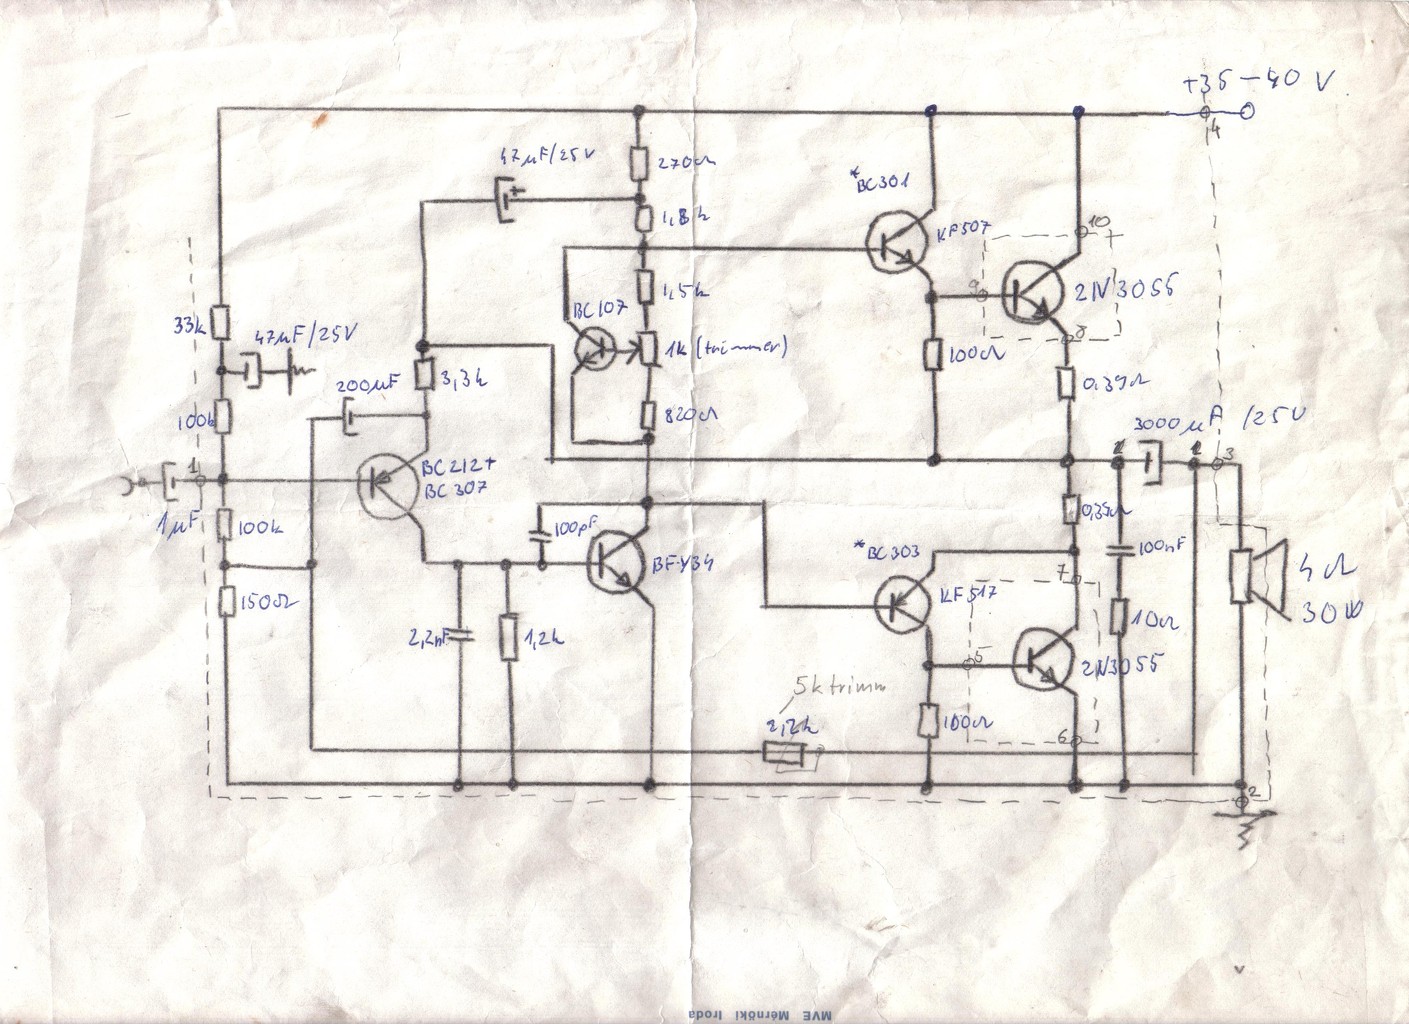 +35-40 V
14
47µF/25V
270Ω
*BC301
1,8k
KF507
10
9
2N3055
8
BC107
1,5k
33k
47µF/25V
1k (trimmer)
100Ω
0,39Ω
3,3k
200µF
100k
820Ω
3000µF /25V
1
BC212+
BC307
3
1µF
100k
100pF
0,39Ω
*BC303
100nF
4Ω
30W
BFY34
7
KF517
150Ω
2,2nF
1,2k
10Ω
5
2N3055
5k trimm
2,2k
100Ω
6
2
MVE Mérnöki Iroda